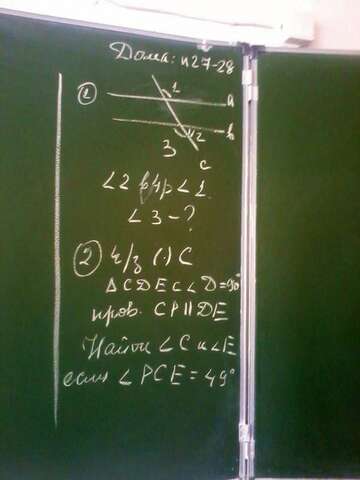 Дома: п27-28
① 1
a
b
2
3
c
∠2 в 4р < ∠1
∠3 - ?
② ч/з (·) C
△CDE с ∠D=90°
пров. CP || DE
Найти ∠C и ∠E
если ∠PCE = 49°